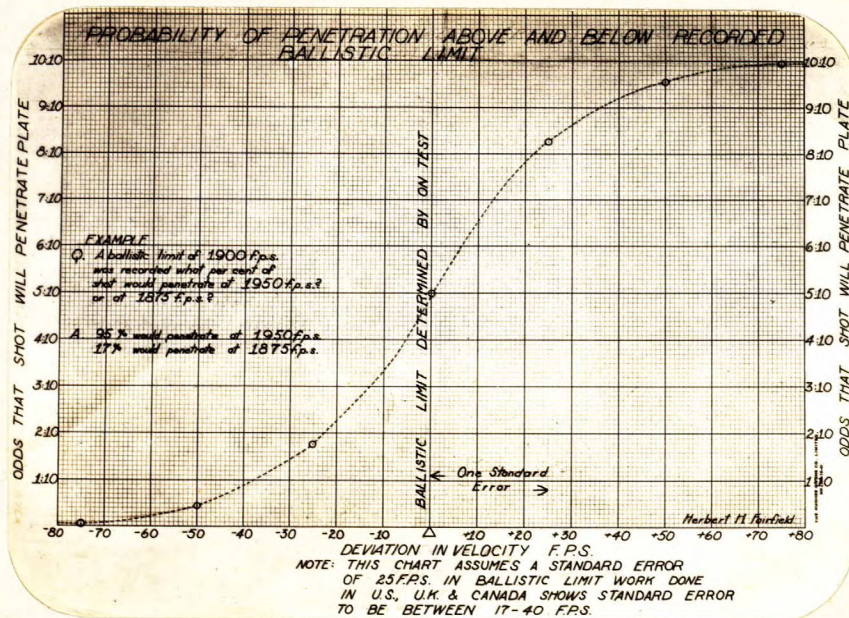 PROBABILITY OF PENETRATION ABOVE AND BELOW RECORDED
BALLISTIC LIMIT
ODDS THAT SHOT WILL PENETRATE PLATE
10:10
9:10
8:10
7:10
6:10
5:10
4:10
3:10
2:10
1:10
EXAMPLE
Q. A ballistic limit of 1900 f.p.s.
was recorded what per cent of
shot would penetrate at 1950 f.p.s.?
or at 1875 f.p.s.?
A. 95% would penetrate at 1950 f.p.s.
17% would penetrate at 1875 f.p.s.
BALLISTIC LIMIT DETERMINED BY ON TEST
One Standard
Error
10:10
9:10
8:10
7:10
6:10
5:10
4:10
3:10
2:10
1:10
ODDS THAT SHOT WILL PENETRATE PLATE
Herbert M Fairfield
-80 -70 -60 -50 -40 -30 -20 -10 +10 +20 +30 +40 +50 +60 +70 +80
DEVIATION IN VELOCITY F.P.S.
NOTE: THIS CHART ASSUMES A STANDARD ERROR
OF 25 F.P.S. IN BALLISTIC LIMIT WORK DONE
IN U.S., U.K & CANADA SHOWS STANDARD ERROR
TO BE BETWEEN 17-40 F.P.S.